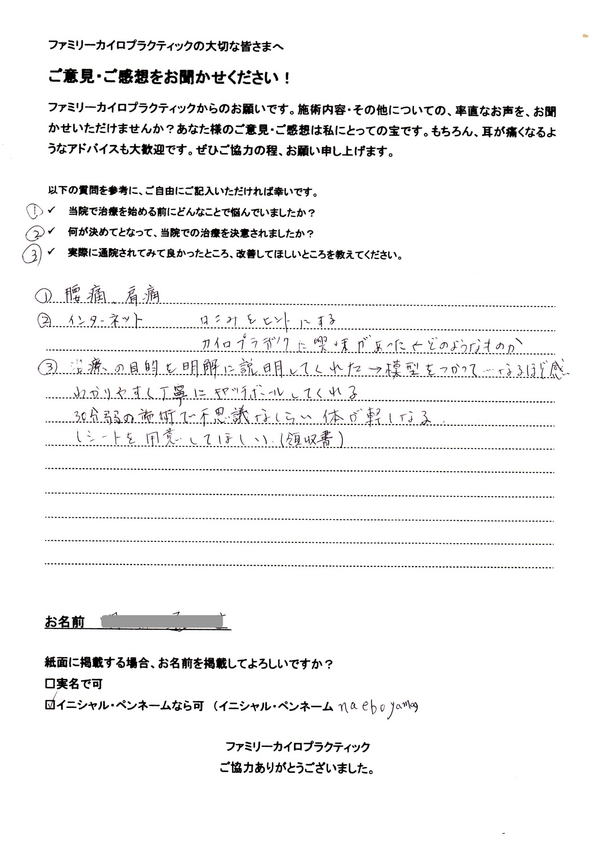 ファミリーカイロプラクティックの大切な皆さまへ
ご意見・ご感想をお聞かせください！
ファミリーカイロプラクティックからのお願いです。施術内容・その他についての、率直なお声を、お聞
かせいただけませんか？あなた様のご意見・ご感想は私にとっての宝です。もちろん、耳が痛くなるよ
うなアドバイスも大歓迎です。ぜひご協力の程、お願い申し上げます。
以下の質問を参考に、ご自由にご記入いただければ幸いです。
① ✓ 当院で治療を始める前にどんなことで悩んでいましたか？
② ✓ 何が決めてとなって、当院での治療を決意されましたか？
③ ✓ 実際に通院されてみて良かったところ、改善してほしいところを教えてください。
① 腰痛、肩痛
② インターネット 口コミをヒントにする
カイロプラチックに興味があった←どのようなものか
③ 治療の目的を明解に説明してくれた→模型をつかって…なるほど感
わかりやすく丁寧にキャッチボールしてくれる
30分弱の施術で不思議なくらい体が軽くなる.
レシートを用意してほしい.(領収書)
お名前
紙面に掲載する場合、お名前を掲載してよろしいですか？
□実名で可
☑イニシャル・ペンネームなら可 （イニシャル・ペンネーム
ファミリーカイロプラクティック
ご協力ありがとうございました。